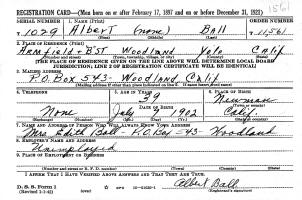 1561
REGISTRATION CARD—(Men born on or after February 17, 1897 and on or before December 31, 1921)
SERIAL NUMBER 1. NAME (Print) ORDER NUMBER
1029 Albert (none) Ball 11561
(First) (Middle) (Last)
2. PLACE OF RESIDENCE (Print)
Woodland Yolo Calif
(Number and street) (Town, township, village, or city) (County) (State)
[THE PLACE OF RESIDENCE GIVEN ON THE LINE ABOVE WILL DETERMINE LOCAL BOARD
JURISDICTION; LINE 2 OF REGISTRATION CERTIFICATE WILL BE IDENTICAL]
3. MAILING ADDRESS
P.O. Box 543 - Woodland Calif
(Mailing address if other than place indicated on line 2. If same, insert word same)
4. TELEPHONE 5. AGE IN YEARS 6. PLACE OF BIRTH
39 Newman
DATE OF BIRTH (Town or county)
None July 1902 Calif
(Exchange) (Number) (Mo.) (Day) (Yr.) (State or country)
7. NAME AND ADDRESS OF PERSON WHO WILL ALWAYS KNOW YOUR ADDRESS
Mrs Edith Ball - P.O. Box 543 - Woodland
8. EMPLOYER'S NAME AND ADDRESS
Unemployed
9. PLACE OF EMPLOYMENT OR BUSINESS
(Number and street or R. F. D. number) (Town) (County) (State)
I AFFIRM THAT I HAVE VERIFIED ABOVE ANSWERS AND THAT THEY ARE TRUE.
D. S. S. Form 1
Albert Ball